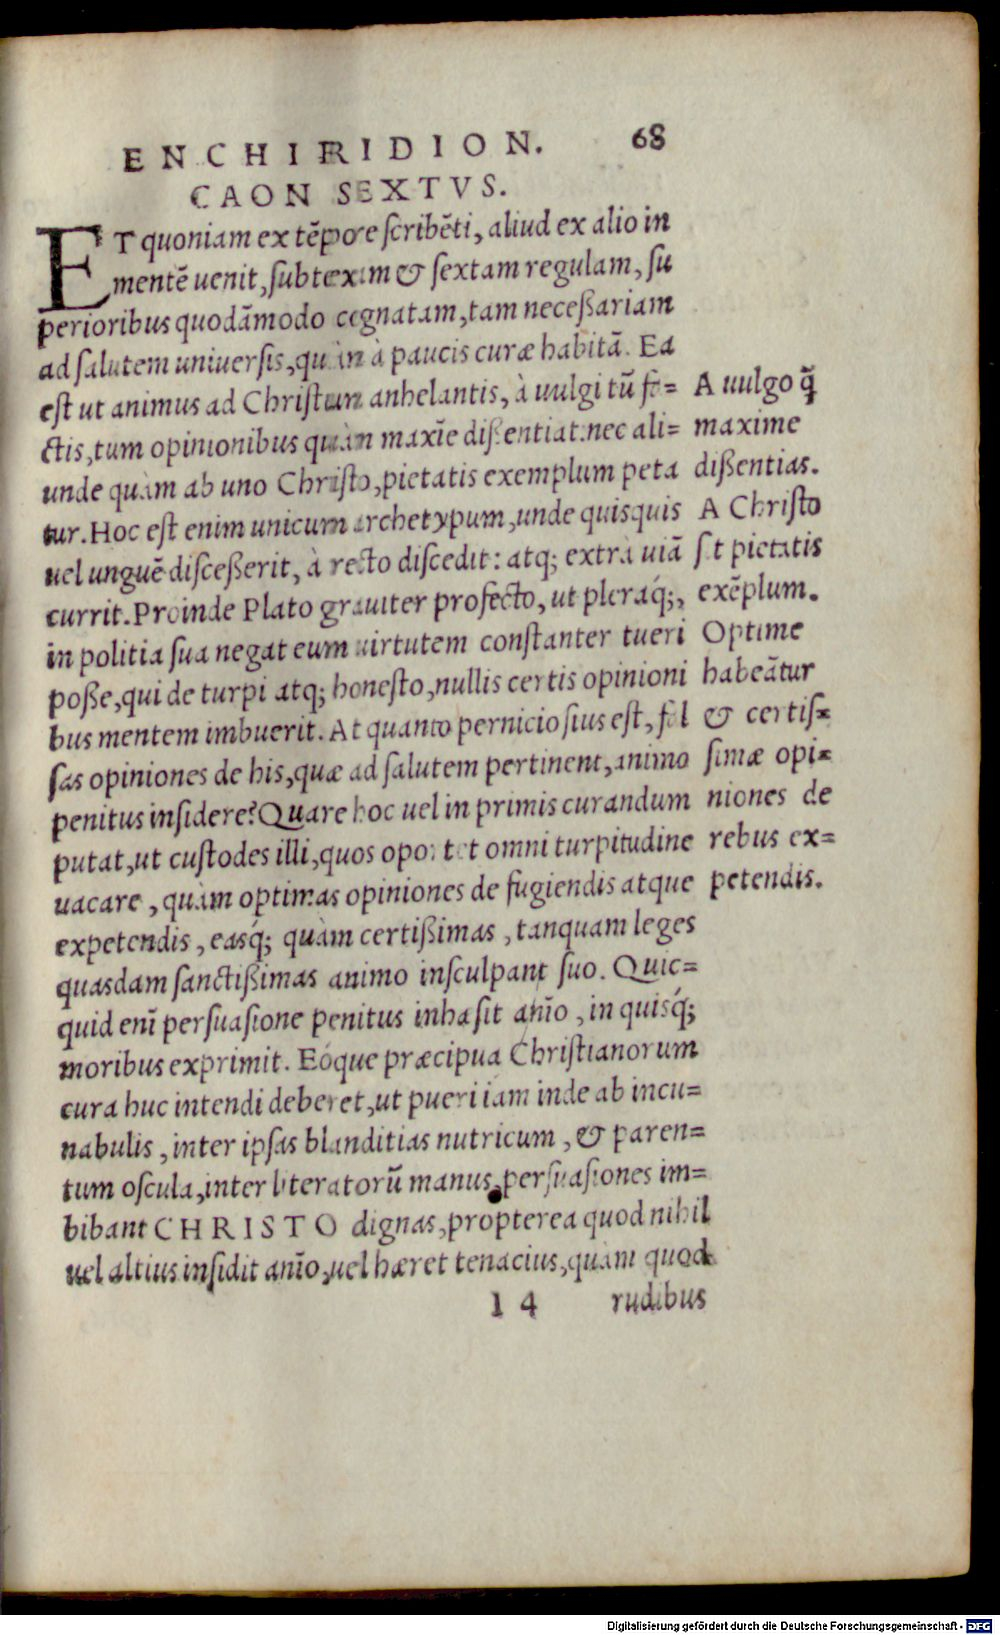 ENCHIRIDION. 68
CAON SEXTVS.
ET quoniam ex tēpore scribēti, aliud ex alio in
mentē uenit, subtexam & sextam regulam, su
perioribus quodāmodo cognatam, tam necessariam
ad salutem uniuersis, quàm à paucis curæ habitā. Ea
est ut animus ad Christum anhelantis, à uulgi tū fa=
ctis, tum opinionibus quàm maxīe dissentiat: nec ali=
unde quàm ab uno Christo, pietatis exemplum peta
tur. Hoc est enim unicum archetypum, unde quisquis
uel unguē discesserit, à recto discedit: atq; extra uiā
currit. Proinde Plato grauiter profecto, ut pleraq́;,
in politia sua negat eum uirtutem constanter tueri
posse, qui de turpi atq; honesto, nullis certis opinioni
bus mentem imbuerit. At quanto perniciosius est, fal
sas opiniones de his, quæ ad salutem pertinent, animo
penitus insidere? Quare hoc uel in primis curandum
putat, ut custodes illi, quos oportet omni turpitudine
uacare, quàm optimas opiniones de fugiendis atque
expetendis, easq́; quàm certissimas, tanquam leges
quasdam sanctissimas animo insculpant suo. Quic=
quid enī persuasione penitus inhasit anīo, in quisq́;
moribus exprimit. Eóque præcipua Christianorum
cura huc intendi deberet, ut pueri iam inde ab incu=
nabulis, inter ipsas blanditias nutricum, & paren=
tum oscula, inter literatorū manus, persuasiones im=
bibant CHRISTO dignas, propterea quod nihil
uel altius insidit anīo, uel hæret tenacius, quàm quod
l 4 rudibus
A uulgo q̄̃
maxime
dissentias.
A Christo
sit pietatis
exēplum.
Optime
habeātur
& certis=
simæ opi=
niones de
rebus ex=
petendis.
Digitalisierung gefördert durch die Deutsche Forschungsgemeinschaft - DFG